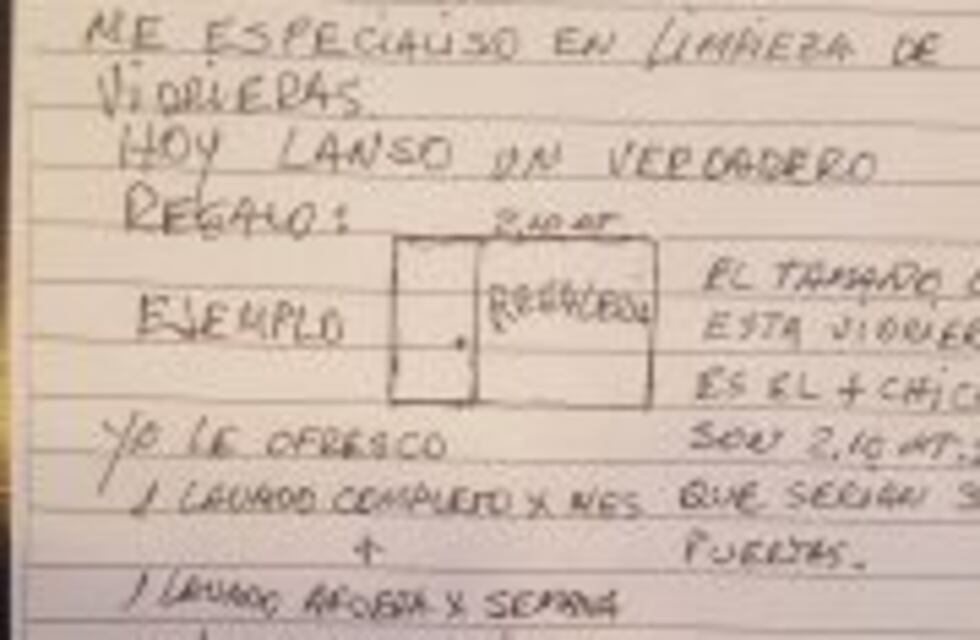 ME ESPECIALISO EN LIMPIEZA DE
VIDRIERAS
HOY LANSO UN VERDADERO
REGALO:
2,10 MT
EJEMPLO
EL TAMAÑO
ESTA VIDRIER
ES EL + CHIC
SON 2,10 MT.
QUE SERIAN S
PUERTAS.
YO LE OFRESCO
1 LAVADO COMPLETO X MES
+
1 LAVADO AFUERA X SEMANA